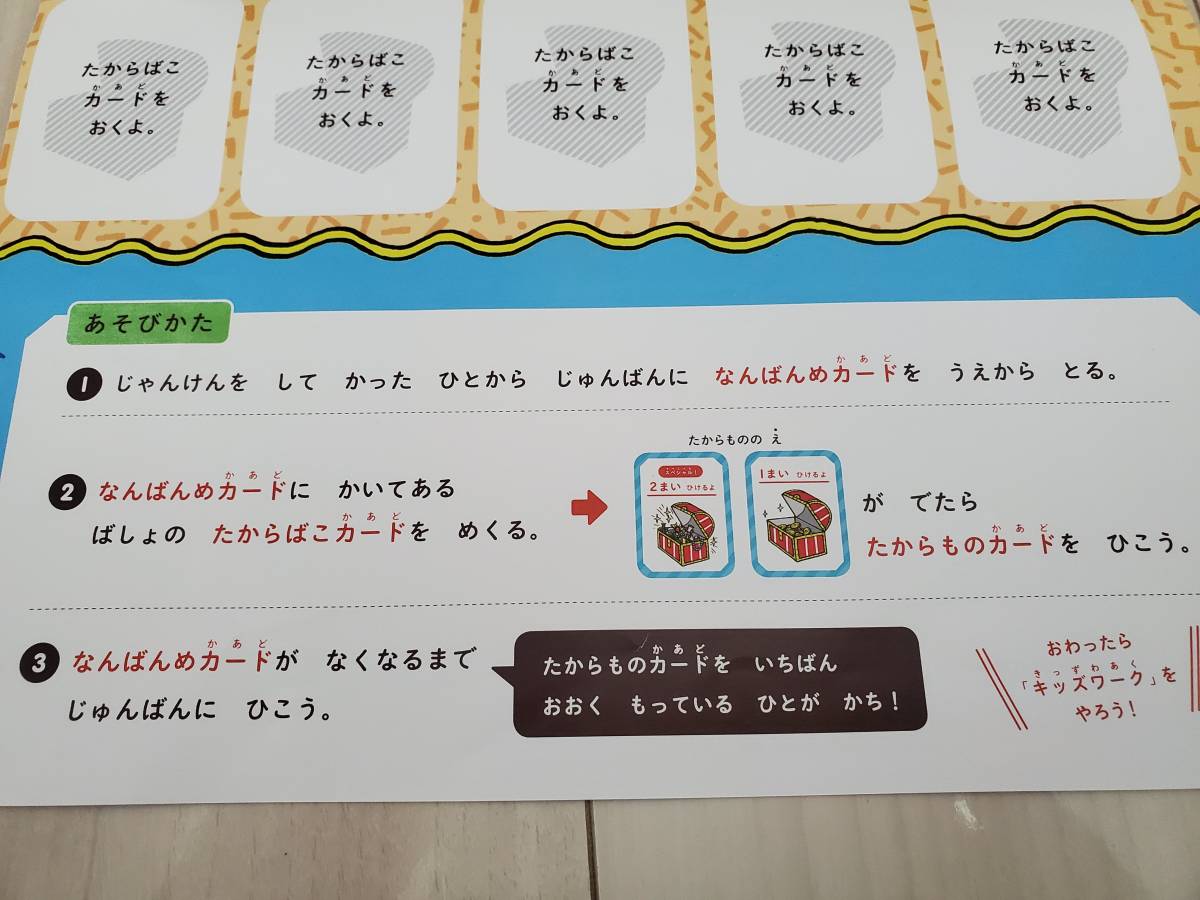 たからばこ
カードを
おくよ。
たからばこ
カードを
おくよ。
たからばこ
カードを
おくよ。
たからばこ
カードを
おくよ。
たからばこ
カードを
おくよ。
あそびかた
1 じゃんけんを して かった ひとから じゅんばんに なんばんめカードを うえから とる。
2 なんばんめカードに かいてある
ばしょの たからばこカードを めくる。
たからものの え
スペシャル!
2まい ひけるよ
1まい ひけるよ
が でたら
たからものカードを ひこう。
3 なんばんめカードが なくなるまで
じゅんばんに ひこう。
たからものカードを いちばん
おおく もっている ひとが かち!
おわったら
「キッズワーク」を
やろう!